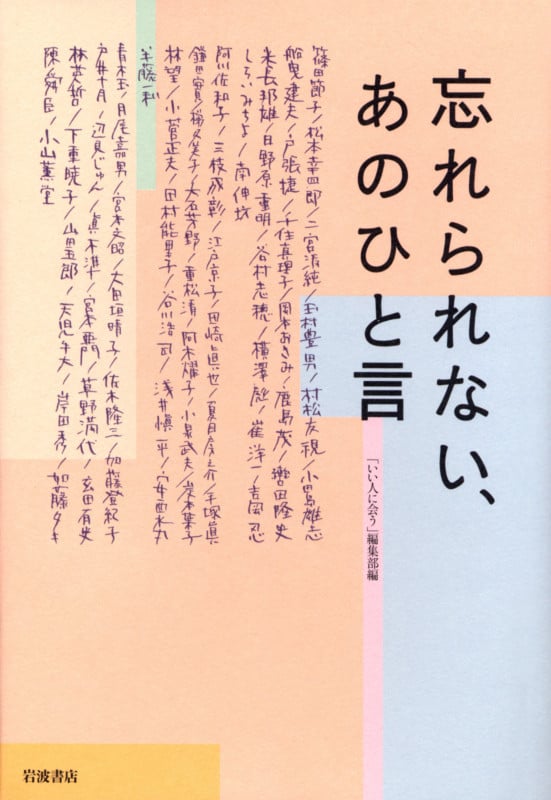 忘れられない、
あのひと言
「いい人に会う」編集部編
篠田節子/松本幸四郎/二宮清純/玉村豊男/村松友視/小田島雄志
船曳建夫/戸張捷/千住真理子/岡本おさみ/鹿島茂/
米長邦雄/日野原重明/谷村志穂/横澤彪/崔洋一/吉岡忍
しろいみちよ/南伸坊
阿川佐和子/三枝成彰/江戸京子/田崎真也/夏目房之介/手塚眞
鎌田實/大石芳野/重松清/阿木燿子/小泉武夫/岸本葉子
林望/小菅正夫/田村能里子/谷川浩司/浅井愼平/安西水丸
半藤一利
青木玉/月尾嘉男/宮本文昭/大田垣晴子/佐木隆三/加藤登紀子
戸井十月/辺見じゅん/眞木準/宮本亜門/草野満代/玄田有史
林英哲/下重暁子/山田五郎/天児牛大/岸田秀/加藤タキ
陳舜臣/小山薫堂
岩波書店